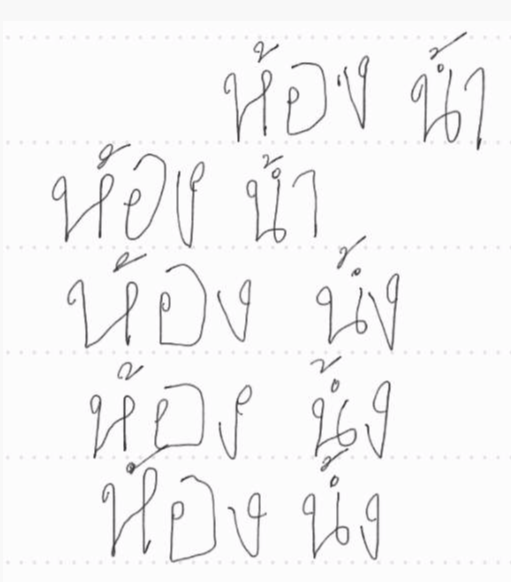 ห้อง น้ำ
ห้อง น้ำ
ห้อง นํ้ง
ห้อง นํ้ง
ห้อง นํ้ง